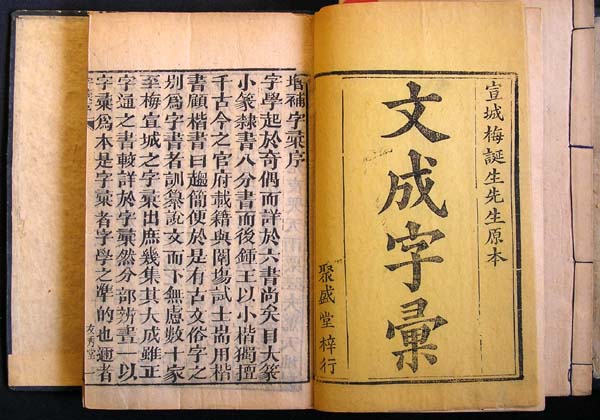 宣城梅誕生先生原本
文成字彚
聚盛堂梓行
增補字彚序
字學起於奇偶而詳於六書尚矣自大篆
小篆隸書八分書而後鍾王以小楷獨擅
千古今之官府載籍與闈場試士耑用楷
書顧楷書日趨簡便於是有古文俗字之
别爲字書者訓纂說文而下無慮數十家
至梅宣城之字彚出庶幾集其大成雖正
字通之書較詳於字彚然分部辨畫一以
字彚爲本是字彚者字學之準的也邇者
友秀堂